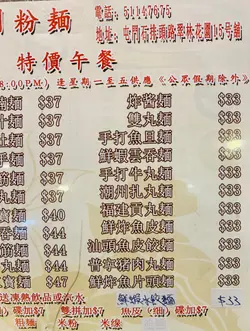 粉麵 電話: 51147675
地址: 屯門石排頭路翠林花園15号鋪
特價午餐
8:00PM) 逢星期一至五供應 《公眾假期除外》
麵 $37 炸醬麵 $33
麵 $37 雙丸麵 $33
麵 $37 手打魚旦麵 $33
麵 $37 鮮蝦雲吞麵 $33
麵 $37 手打牛丸麵 $33
麵 $37 潮州扎丸麵 $33
麵 $40 福建貢丸麵 $33
麵 $44 鮮炸魚皮麵 $33
麵 $44 汕頭魚皮餃麵 $33
麵 $44 普寧猪肉丸麵 $33
麵 $47 鮮炸魚片頭麵 $33
送凍熱飲品或汽水 鮮蝦水餃麵 $33
碟加$7 雙拼加$7 魚皮 碟加$7
麵 米粉 米線